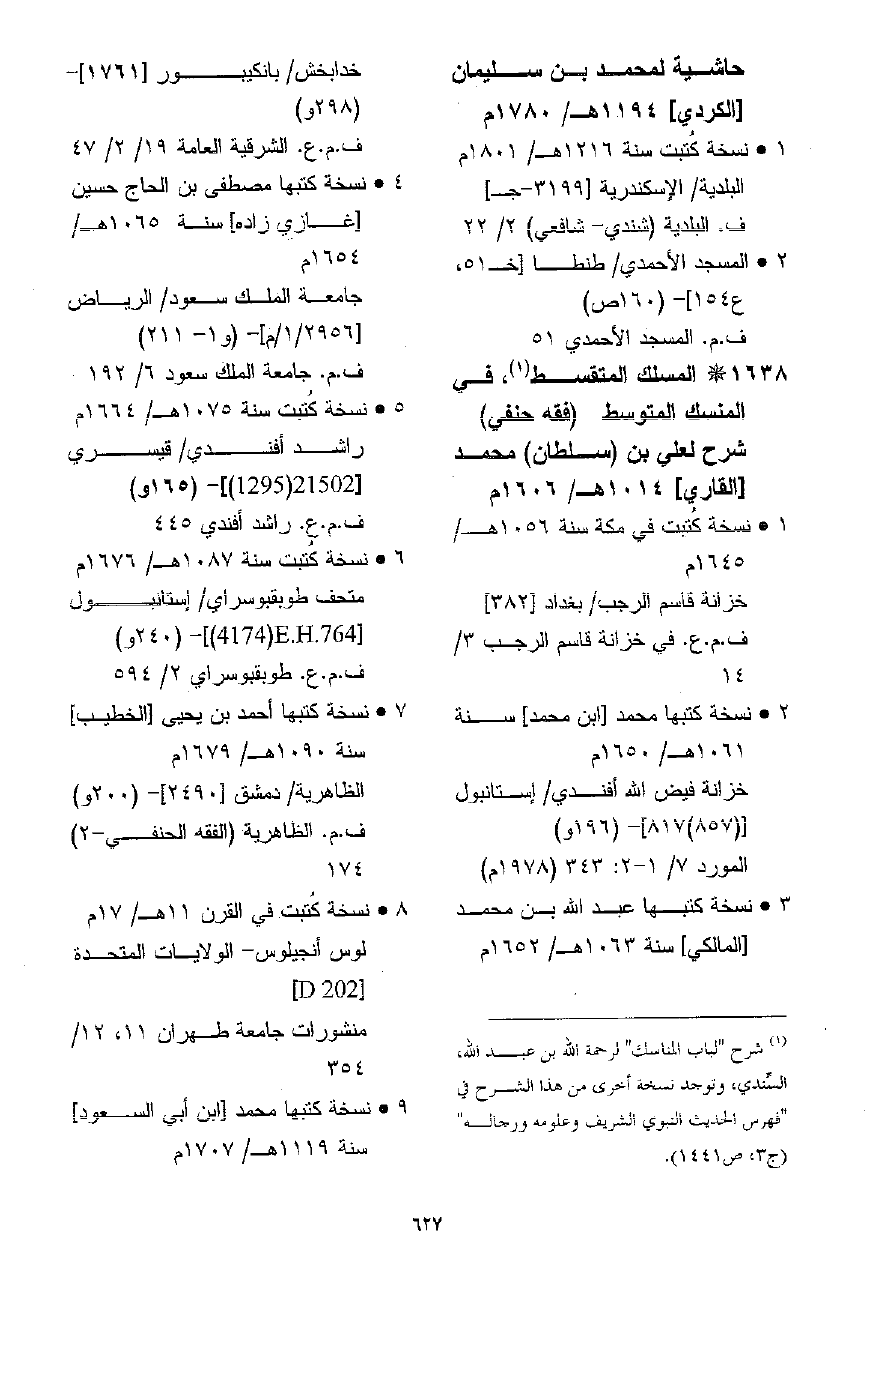 حاشية لمحمد بن سليمان
[الكردي] ١١٩٤هـ/ ١٧٨٠م
١ • نسخة كُتبت سنة ١٢١٦هـ/ ١٨٠١م
البلدية/ الإسكندرية [٣١٩٩-جـ]
ف. البلدية (شندي- شافعي) ٢/ ٢٢
٢ • المسجد الأحمدي/ طنطا [خـ٥١،
ع١٥٤]- (١٦٠ص)
ف.م. المسجد الأحمدي ٥١
١٦٣٨❋ المسلك المتقسط(١)، في
المنسك المتوسط (فقه حنفي)
شرح لعلي بن (سلطان) محمد
[القاري] ١٠١٤هـ/ ١٦٠٦م
١ • نسخة كُتبت في مكة سنة ١٠٥٦هـ/
١٦٤٥م
خزانة قاسم الرجب/ بغداد [٣٨٢]
ف.م.ع. في خزانة قاسم الرجب ٣/
١٤
٢ • نسخة كتبها محمد [ابن محمد] سنة
١٠٦١هـ/ ١٦٥٠م
خزانة فيض الله أفندي/ إستانبول
[(٨٥٧)٨١٧]- (١٩٦و)
المورد ٧/ ١-٢: ٣٤٣ (١٩٧٨م)
٣ • نسخة كتبها عبد الله بن محمد
[المالكي] سنة ١٠٦٣هـ/ ١٦٥٢م
(١) شرح "لباب المناسك" لرحمة الله بن عبد الله،
السِّندي، وتوجد نسخة أخرى من هذا الشرح في
"فهرس الحديث النبوي الشريف وعلومه ورجاله"
(ج٣، ص١٤٤١).
خدابخش/ بانكيبور [١٧٦١]-
(٢٩٨و)
ف.م.ع. الشرقية العامة ١٩/ ٢/ ٤٧
٤ • نسخة كتبها مصطفى بن الحاج حسين
[غازي زاده] سنة ١٠٦٥هـ/
١٦٥٤م
جامعة الملك سعود/ الرياض
[٢٩٥٦/١/م]- (و١- ٢١١)
ف.م. جامعة الملك سعود ٦/ ١٩٢
٥ • نسخة كُتبت سنة ١٠٧٥هـ/ ١٦٦٤م
راشد أفندي/ قيسري
[21502(1295)]- (١٦٥و)
ف.م.ع. راشد أفندي ٤٤٥
٦ • نسخة كُتبت سنة ١٠٨٧هـ/ ١٦٧٦م
متحف طوبقبوسراي/ إستانبول
[E.H.764(4174)]- (٢٤٠و)
ف.م.ع. طوبقبوسراي ٢/ ٥٩٤
٧ • نسخة كتبها أحمد بن يحيى [الخطيب]
سنة ١٠٩٠هـ/ ١٦٧٩م
الظاهرية/ دمشق [٢٤٩٠]- (٢٠٠و)
ف.م. الظاهرية (الفقه الحنفي-٢)
١٧٤
٨ • نسخة كُتبت في القرن ١١هـ/ ١٧م
لوس أنجيلوس- الولايات المتحدة
[D 202]
منشورات جامعة طهران ١١، ١٢/
٣٥٤
٩ • نسخة كتبها محمد [ابن أبي السعود]
سنة ١١١٩هـ/ ١٧٠٧م
٦٢٧